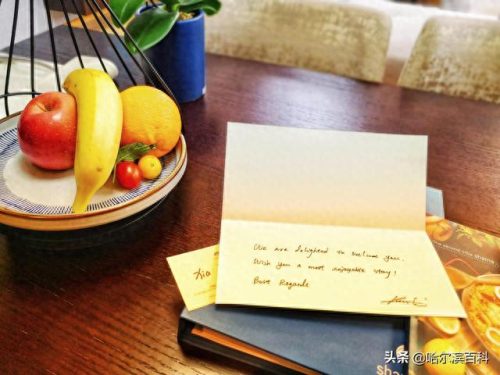 We are delighted to welcome you.
Wish you a most enjoyable stay!
Best Regards
Xia
sha
头条 @哈尔滨百科